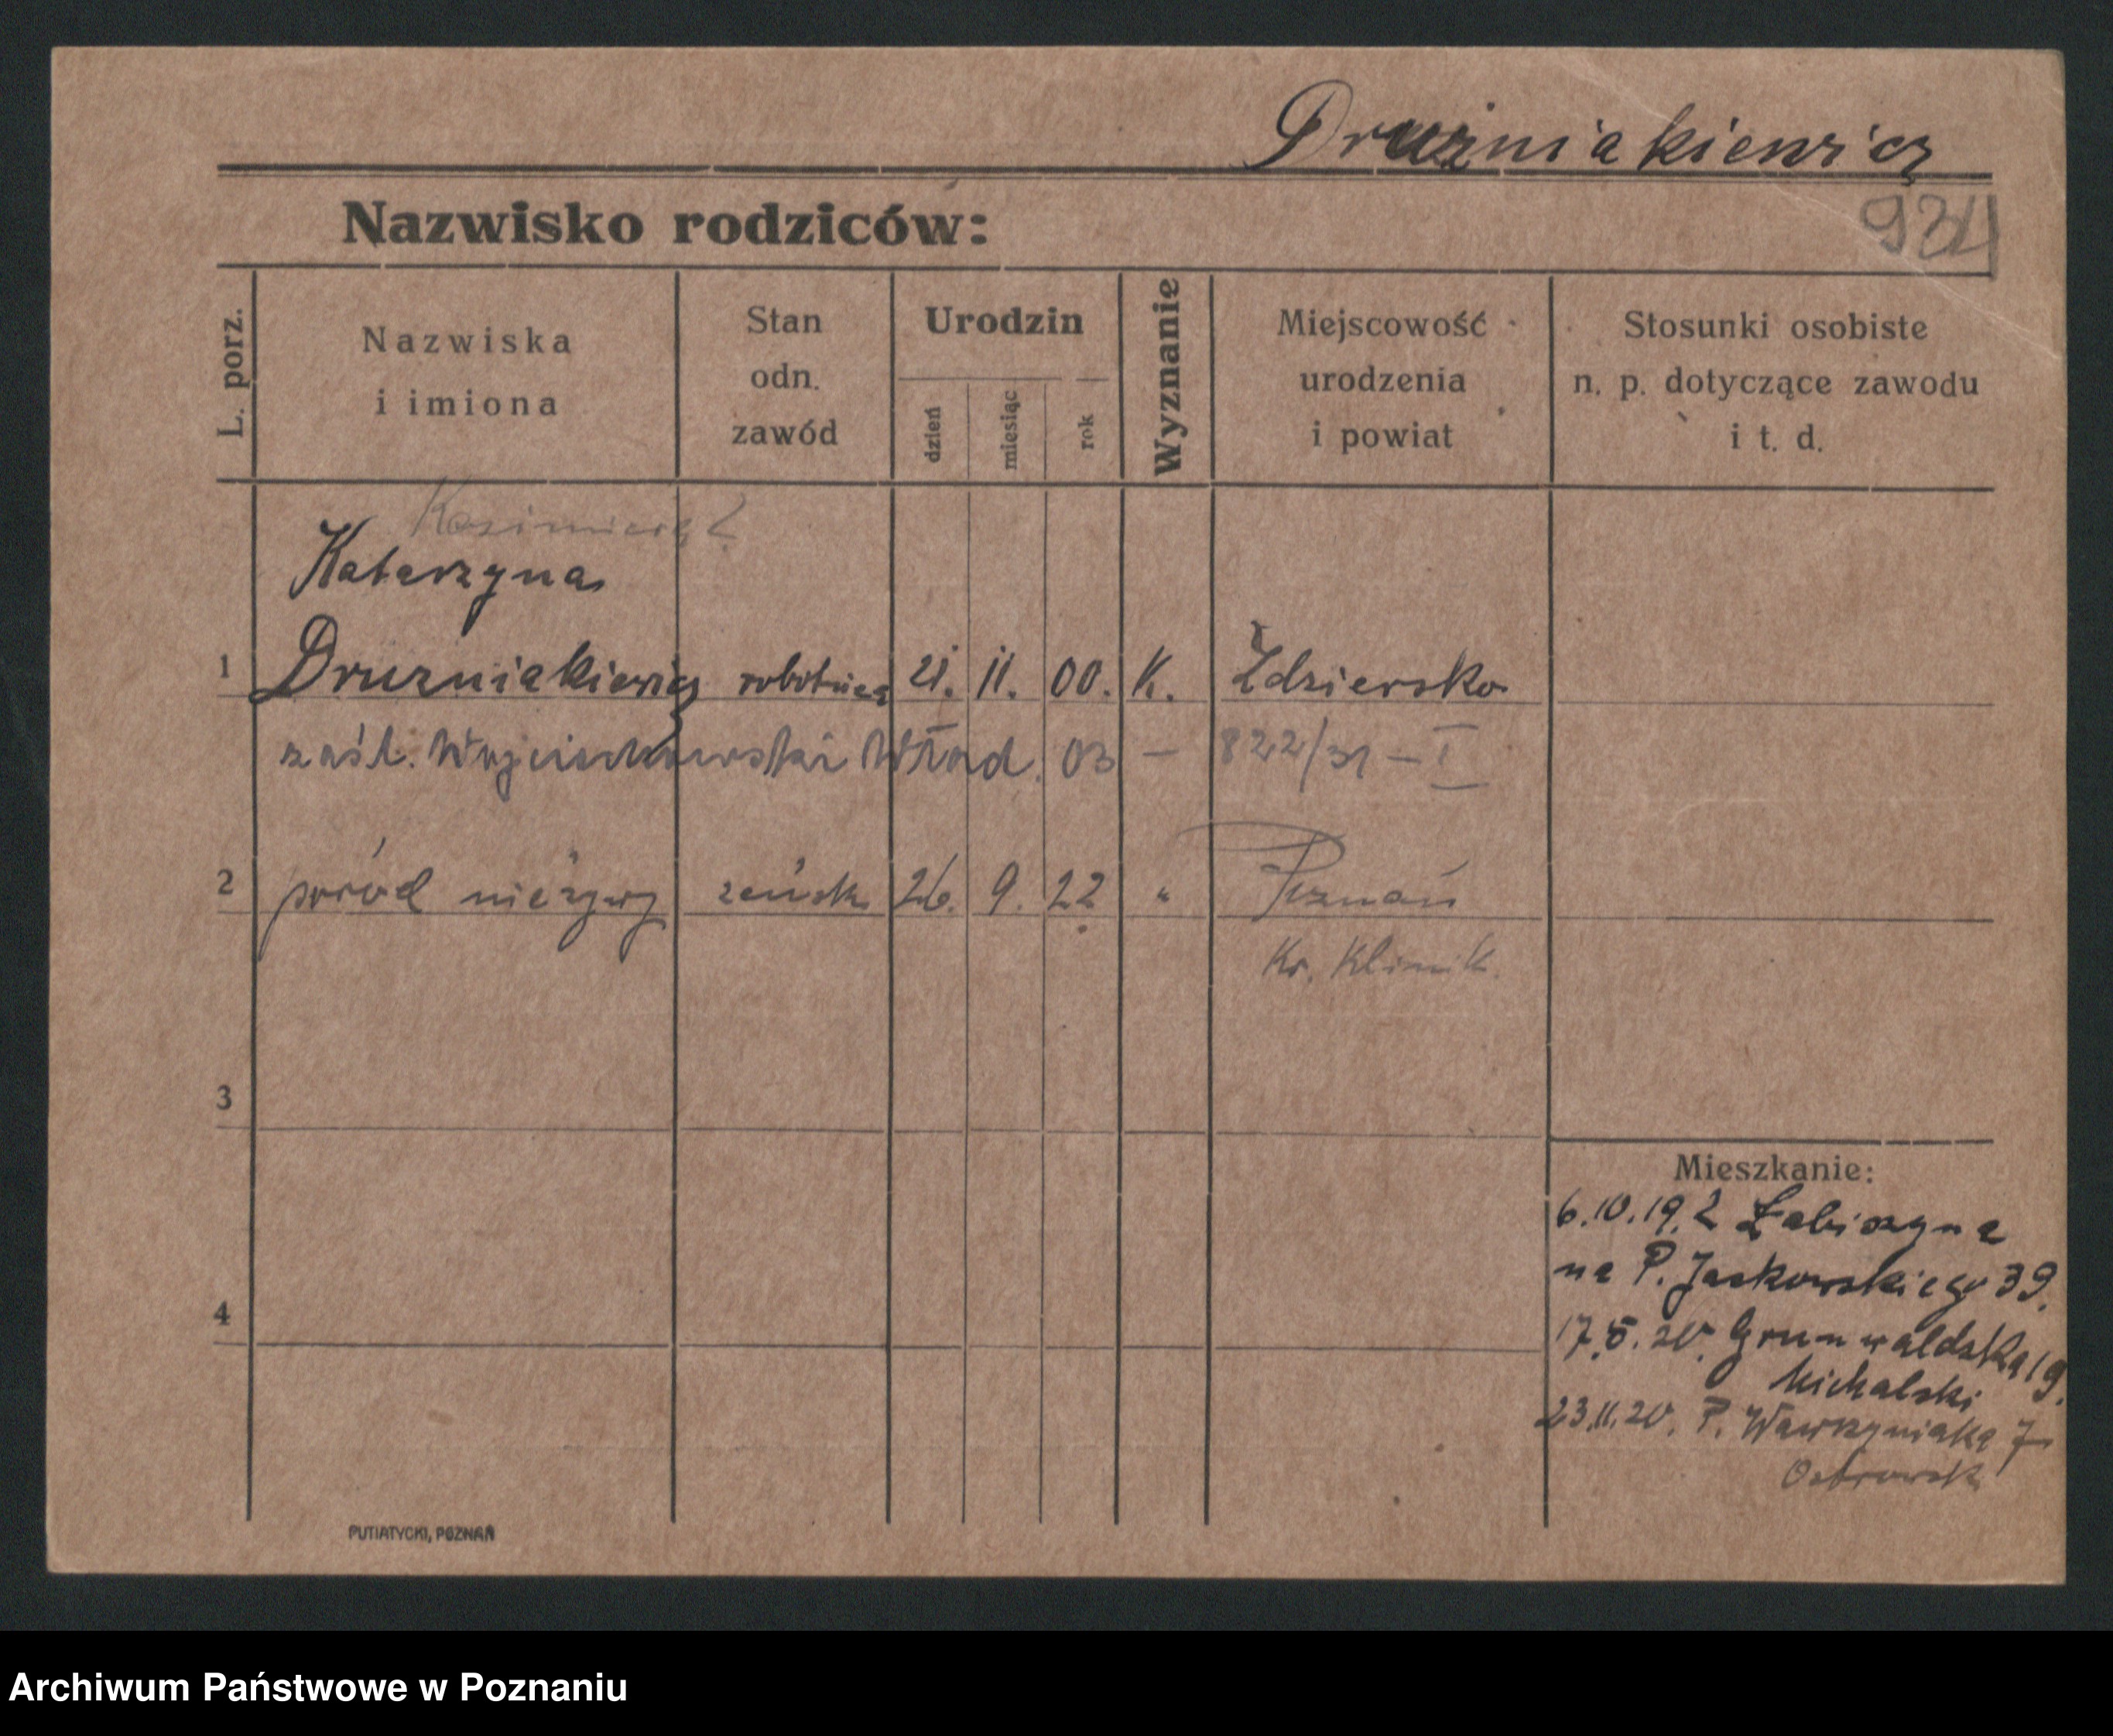 Druzniakiewicz
Nazwisko rodziców:
934
L. porz.
Nazwiska
i imiona
Stan
odn.
zawód
Urodzin
dzień
miesiąc
rok
Wyznanie
Miejscowość
urodzenia
i powiat
Stosunki osobiste
n. p. dotyczące zawodu
i t. d.
Kazimierz ?
Katarzyna
1 Druzniakiewicz robotnica 21. 11. 00. K. Zdziersko
zaśl. Wojciechowski Wład. 03 — 822/31 — I
2 poród nieżywy żeńsk. 26. 9. 22 " Poznań
Kr. Klinik.
3
Mieszkanie:
6.10.19. z Łabiszyna
na P. Jackowskiego 39.
4
17.5.20. Grunwaldska 19.
Michalski
23.11.20. P. Wawrzyniaka 7
Ostrowsk
PUTIATYCKI, POZNAŃ
Archiwum Państwowe w Poznaniu